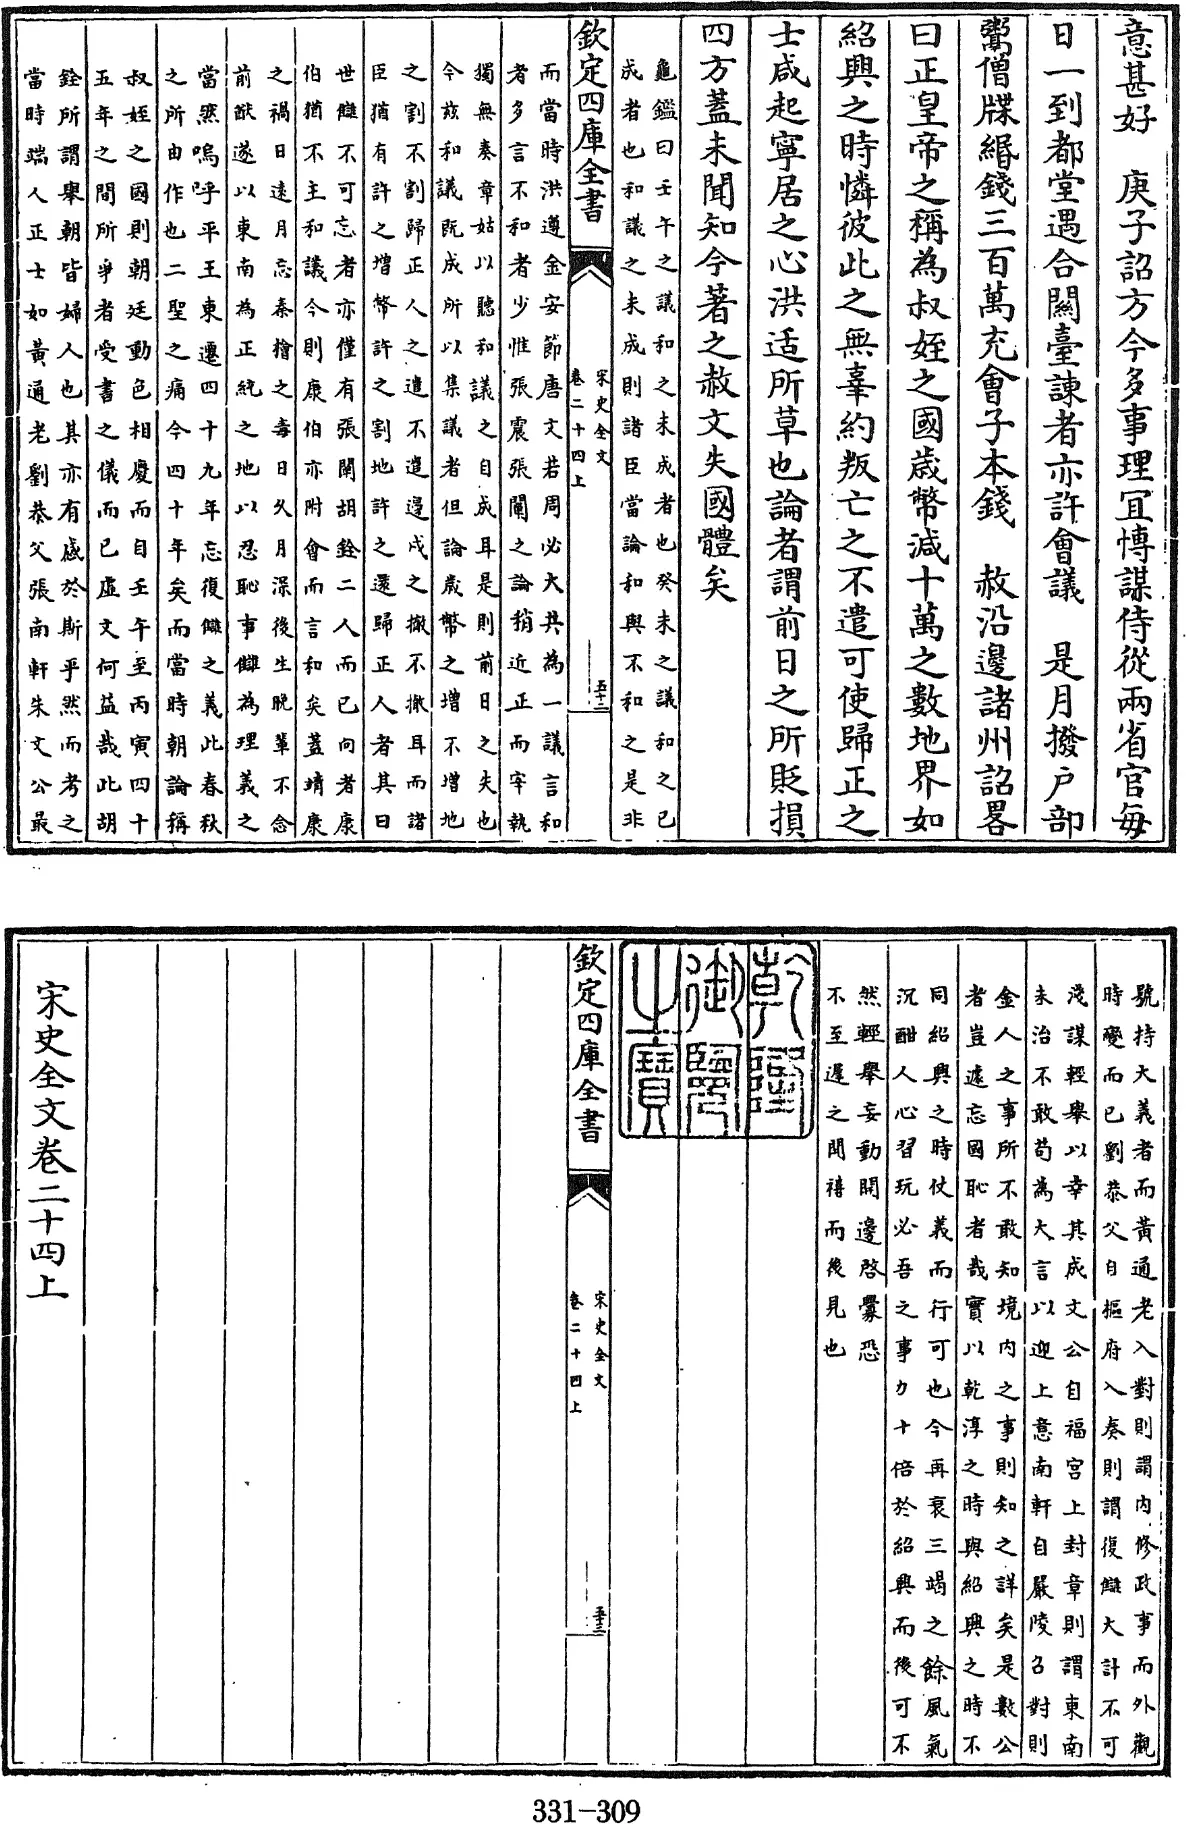 意甚好　庚子詔方今多事理宜博謀侍從兩省官每
日一到都堂遇合關臺諫者亦許會議　是月撥户部
鬻僧牒緡錢三百萬充會子本錢　赦沿邊諸州詔畧
曰正皇帝之稱為叔姪之國歳幣減十萬之數地界如
紹興之時憐彼此之無辜約叛亡之不遣可使歸正之
士咸起寧居之心洪适所草也論者謂前日之所貶損
四方蓋未聞知今著之赦文失國體矣
龜鑑曰壬午之議和之未成者也癸未之議和之已
成者也和議之未成則諸臣當論和與不和之是非
欽定四庫全書
宋史全文
卷二十四上
五十二
而當時洪遵金安節唐文若周必大共為一議言和
者多言不和者少惟張震張闡之論稍近正而宰執
獨無奏章姑以聽和議之自成耳是則前日之失也
今兹和議既成所以集議者但論歲幣之增不增地
之割不割歸正人之遣不遣邊戍之撤不撤耳而諸
臣猶有許之增幣許之割地許之還歸正人者其曰
世雠不可忘者亦僅有張闡胡銓二人而已向者康
伯猶不主和議今則康伯亦附會而言和矣蓋靖康
之禍日遠月忘秦檜之毒日久月深後生晚輩不念
前猷遂以東南為正統之地以忍恥事雠為理義之
當然嗚呼平王東遷四十九年忘復雠之義此春秋
之所由作也二聖之痛今四十年矣而當時朝論稱
叔姪之國則朝廷動色相慶而自壬午至丙寅四十
五年之間所爭者受書之儀而已虛文何益哉此胡
銓所謂舉朝皆婦人也其亦有感於斯乎然而考之
當時端人正士如黃通老劉恭父張南軒朱文公最
號持大義者而黃通老入對則謂内修政事而外觀
時變而已劉恭父自樞府入奏則謂復雠大計不可
淺謀輕舉以幸其成文公自福宮上封章則謂東南
未治不敢苟為大言以迎上意南軒自嚴陵召對則
金人之事所不敢知境内之事則知之詳矣是數公
者豈遽忘國恥者哉實以乾淳之時與紹興之時不
同紹興之時仗義而行可也今再衰三竭之餘風氣
沉酣人心習玩必吾之事力十倍於紹興而後可不
然輕舉妄動開邊啓釁恐
不至遲之開禧而後見也
乾隆
御覽
之寶
欽定四庫全書
宋史全文
卷二十四上
五十三
宋史全文卷二十四上
331-309